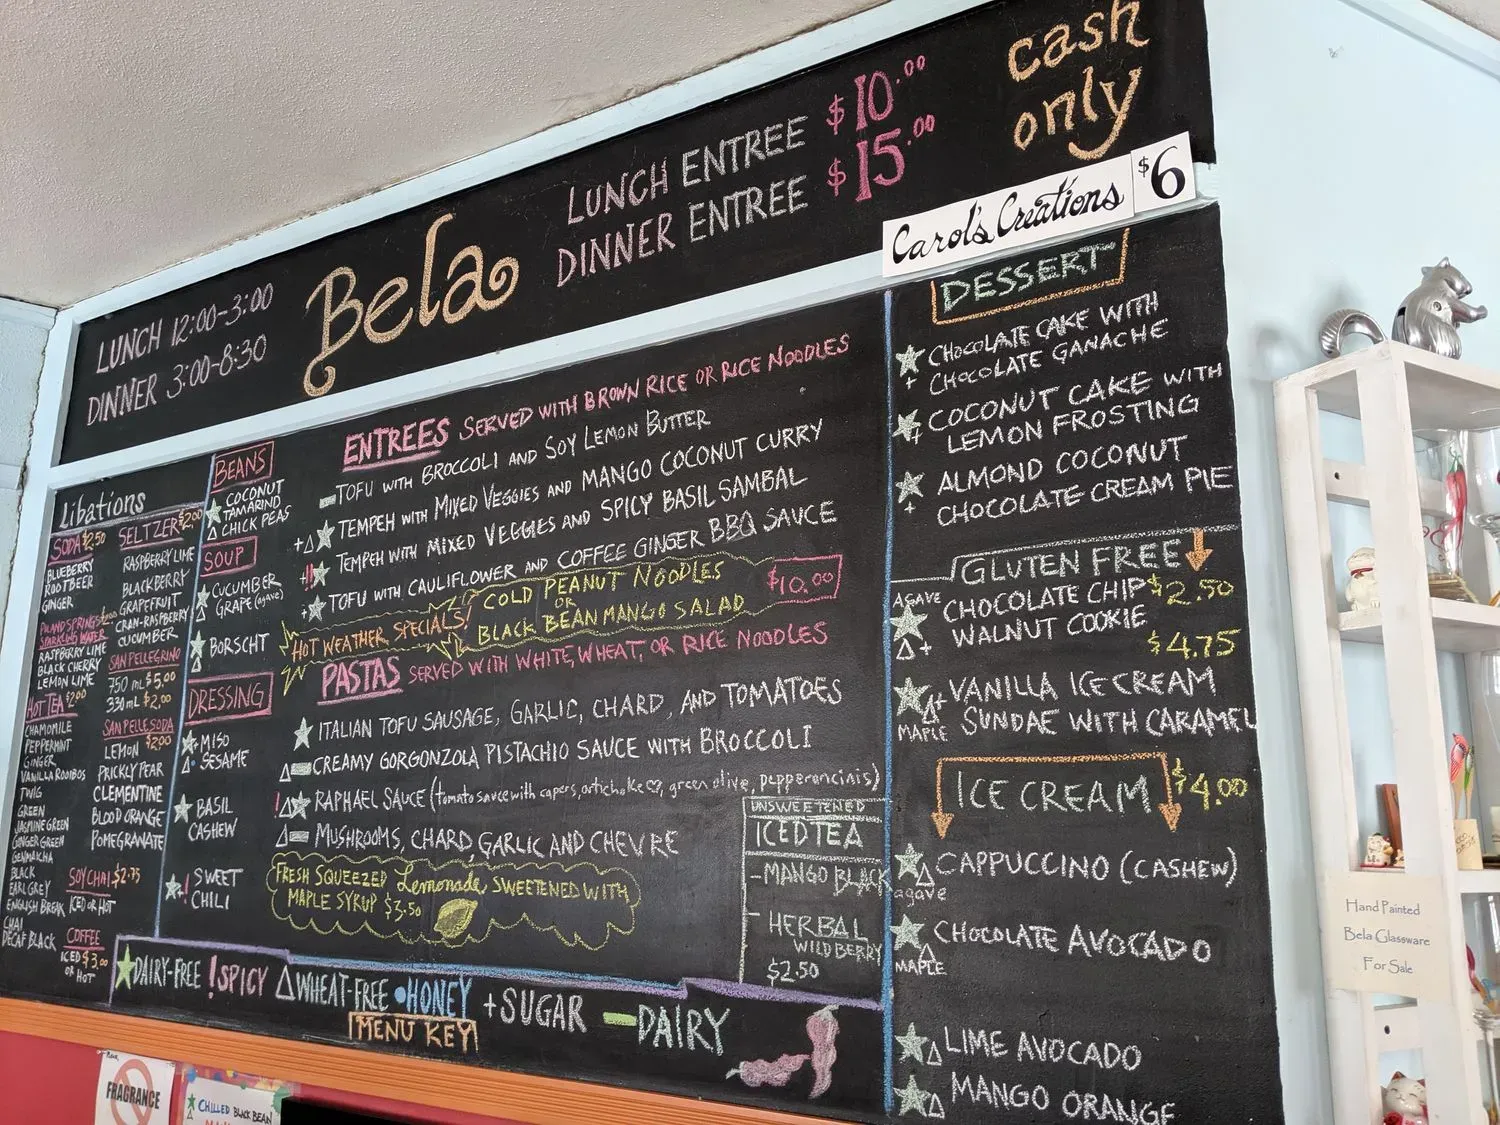 cash
only
LUNCH ENTREE $10.00
DINNER ENTREE $15.00
Bela
LUNCH 12:00-3:00
DINNER 3:00-8:30
Carol's Creations $6
Libations
SODA $2.50
BLUEBERRY
ROOTBEER
GINGER
SPARKLING WATER
RASPBERRY LIME
BLACK CHERRY
LEMON LIME
HOT TEA $2.00
CHAMOMILE
PEPPERMINT
GINGER
VANILLA ROOIBOS
TWIG
GREEN
JASMINE GREEN
GINGER GREEN
GENMAICHA
BLACK
EARL GREY
ENGLISH BREAK
CHAI
DECAF BLACK
SELTZER $2.00
RASPBERRY LIME
BLACKBERRY
GRAPEFRUIT
CRAN-RASPBERRY
CUCUMBER
SAN PELLEGRINO
750 mL $5.00
330 mL $2.00
SAN PELLE SODA
LEMON $2.00
PRICKLY PEAR
CLEMENTINE
BLOOD ORANGE
POMEGRANATE
SOY CHAI $2.75
ICED OR HOT
COFFEE
ICED $3.00
OR
HOT
BEANS
COCONUT
TAMARIND
CHICK PEAS
SOUP
CUCUMBER
GRAPE (agave)
BORSCHT
DRESSING
+ MISO
SESAME
BASIL
CASHEW
! SWEET
CHILI
ENTREES SERVED WITH BROWN RICE OR RICE NOODLES
TOFU WITH BROCCOLI AND SOY LEMON BUTTER
+ TEMPEH WITH MIXED VEGGIES AND MANGO COCONUT CURRY
TEMPEH WITH MIXED VEGGIES AND SPICY BASIL SAMBAL
+ TOFU WITH CAULIFLOWER AND COFFEE GINGER BBQ SAUCE
HOT WEATHER SPECIALS!
COLD PEANUT NOODLES $10.00
OR
BLACK BEAN MANGO SALAD
PASTAS SERVED WITH WHITE, WHEAT, OR RICE NOODLES
ITALIAN TOFU SAUSAGE, GARLIC, CHARD, AND TOMATOES
CREAMY GORGONZOLA PISTACHIO SAUCE WITH BROCCOLI
! RAPHAEL SAUCE (tomato sauce with capers, artichoke, green olive, pepperoncinis)
MUSHROOMS, CHARD, GARLIC AND CHEVRE
FRESH SQUEEZED Lemonade, SWEETENED WITH
MAPLE SYRUP $3.50
UNSWEETENED
ICED TEA
-MANGO BLACK
- HERBAL
WILD BERRY
$2.50
DAIRY-FREE !SPICY WHEAT-FREE HONEY +SUGAR DAIRY
MENU KEY
DESSERT
CHOCOLATE CAKE WITH
+ CHOCOLATE GANACHE
COCONUT CAKE WITH
+ LEMON FROSTING
ALMOND COCONUT
+ CHOCOLATE CREAM PIE
GLUTEN FREE
AGAVE CHOCOLATE CHIP $2.50
+ WALNUT COOKIE
$4.75
+ VANILLA ICE CREAM
MAPLE SUNDAE WITH CARAMEL
ICE CREAM $4.00
CAPPUCCINO (CASHEW)
agave
CHOCOLATE AVOCADO
MAPLE
LIME AVOCADO
MANGO ORANGE
FRAGRANCE
CHILLED BLACK BEAN
Hand Painted
Bela Glassware
For Sale